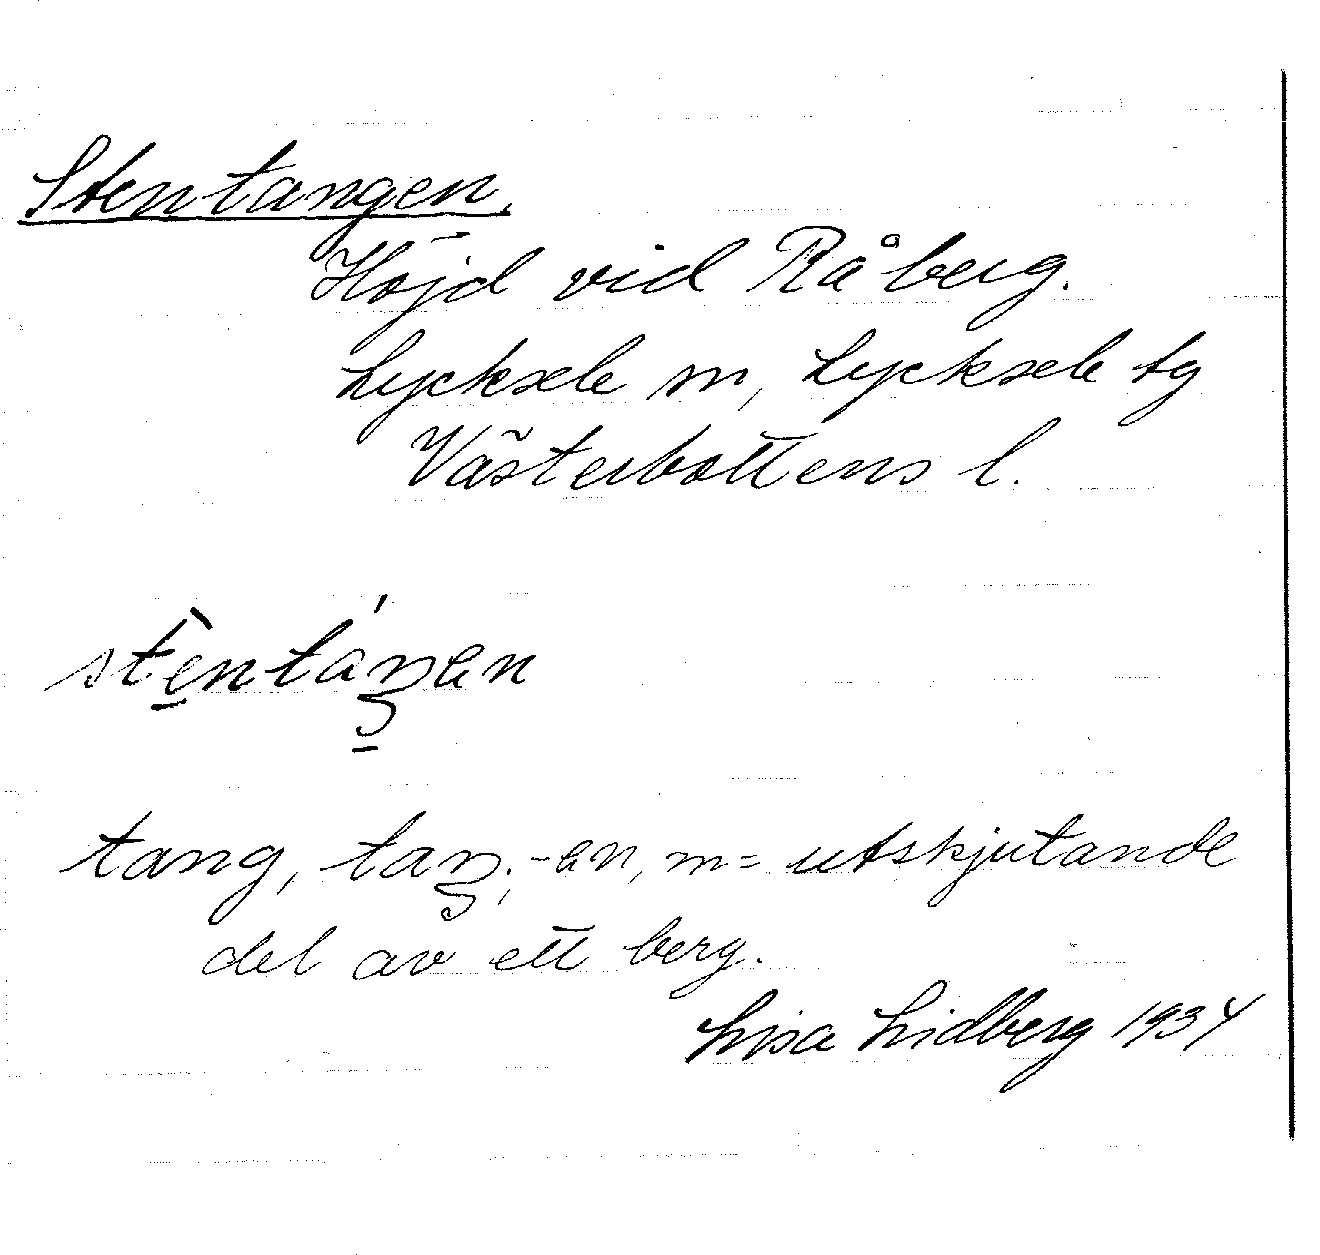 Stentangen.
Höjd vid Råberg.
Lycksele sn, Lycksele tg
Västerbottens l.
stèntáŋən
tang, taŋ; -ən, m= utskjutande
del av ett berg.
Lisa Lidberg 1934